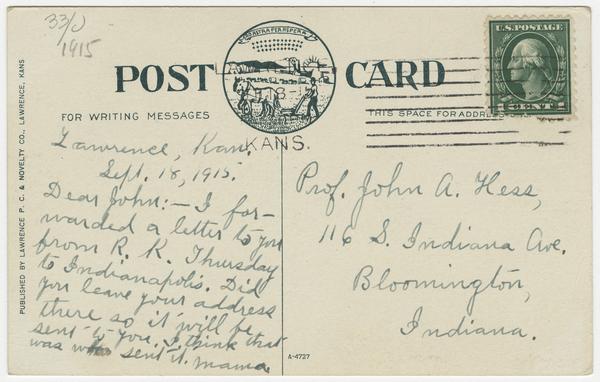 33/J
1915
AD ASTRA PER ASPERA
U.S. POSTAGE
1 CENT 1
POST CARD
KANS.
FOR WRITING MESSAGES
THIS SPACE FOR ADDRESS
PUBLISHED BY LAWRENCE P. C. & NOVELTY CO., LAWRENCE, KANS
Lawrence, Kan.
Sept. 18, 1915.
Dear John:— I for-
warded a letter to you
from R. K. Thursday
to Indianapolis. Did
you leave your address
there so it will be
sent to you. I think that
was sent it. Mama
Prof. John A. Hess,
116 S. Indiana Ave.
Bloomington,
Indiana.
A-4727